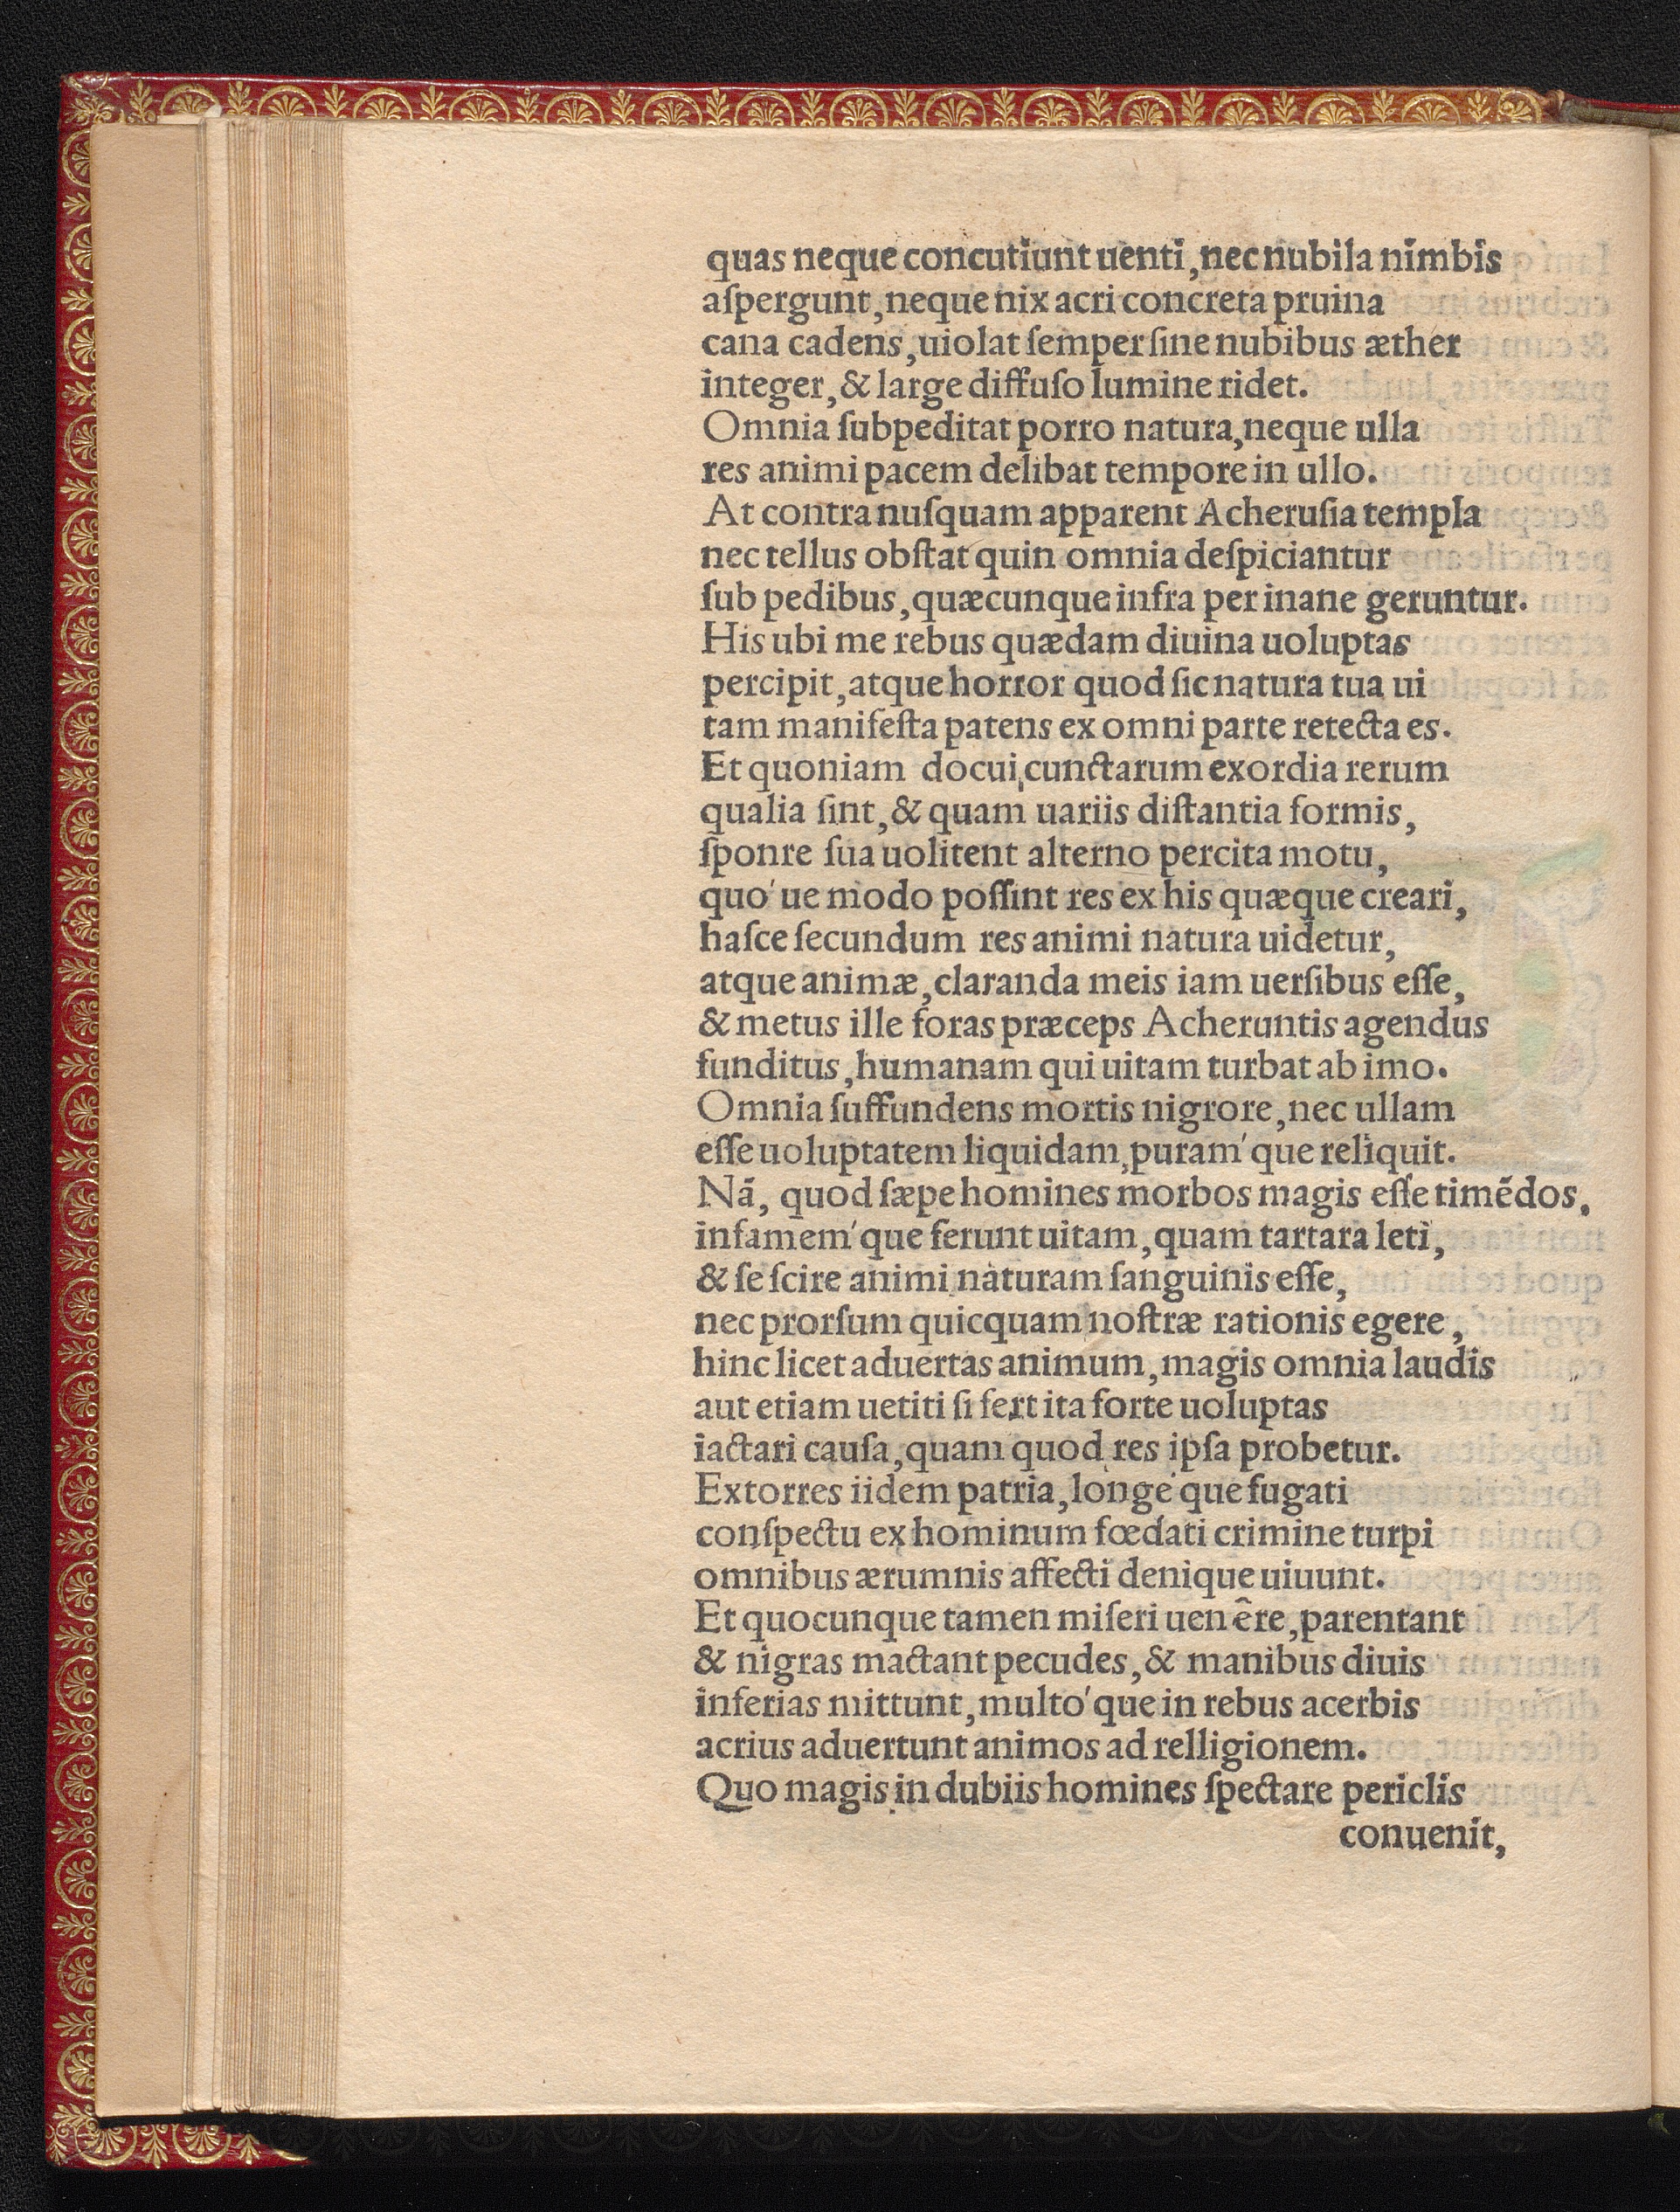 quas neque concutiunt uenti, nec nubila nimbis
aſpergunt, neque nix acri concreta pruina
cana cadens, uiolat ſemper ſine nubibus æther
integer, & large diffuſo lumine ridet.
Omnia ſubpeditat porro natura, neque ulla
res animi pacem delibat tempore in ullo.
At contra nuſquam apparent Acheruſia templa
nec tellus obſtat quin omnia deſpiciantur
ſub pedibus, quæcunque infra per inane geruntur.
His ubi me rebus quædam diuina uoluptas
percipit, atque horror quod ſic natura tua ui
tam manifeſta patens ex omni parte retecta es.
Et quoniam docui, cunctarum exordia rerum
qualia ſint, & quam uariis diſtantia formis,
ſponte ſua uolitent alterno percita motu,
quo' ue modo poſſint res ex his quæque creari,
haſce ſecundum res animi natura uidetur,
atque animæ, claranda meis iam uerſibus eſſe,
& metus ille foras præceps Acheruntis agendus
funditus, humanam qui uitam turbat ab imo.
Omnia ſuffundens mortis nigrore, nec ullam
eſſe uoluptatem liquidam, puram' que reliquit.
Nā, quod ſæpe homines morbos magis eſſe timēdos,
infamem' que ferunt uitam, quam tartara leti,
& ſe ſcire animi naturam ſanguinis eſſe,
nec prorſum quicquam noſtræ rationis egere,
hinc licet aduertas animum, magis omnia laudis
aut etiam uetiti ſi fert ita forte uoluptas
iactari cauſa, quam quod res ipſa probetur.
Extorres iidem patria, longe' que fugati
conſpectu ex hominum fœdati crimine turpi
omnibus ærumnis affecti denique uiuunt.
Et quocunque tamen miſeri uenêre, parentant
& nigras mactant pecudes, & manibus diuis
inferias mittunt, multo' que in rebus acerbis
acrius aduertunt animos ad relligionem.
Quo magis in dubiis homines ſpectare periclis
conuenit,